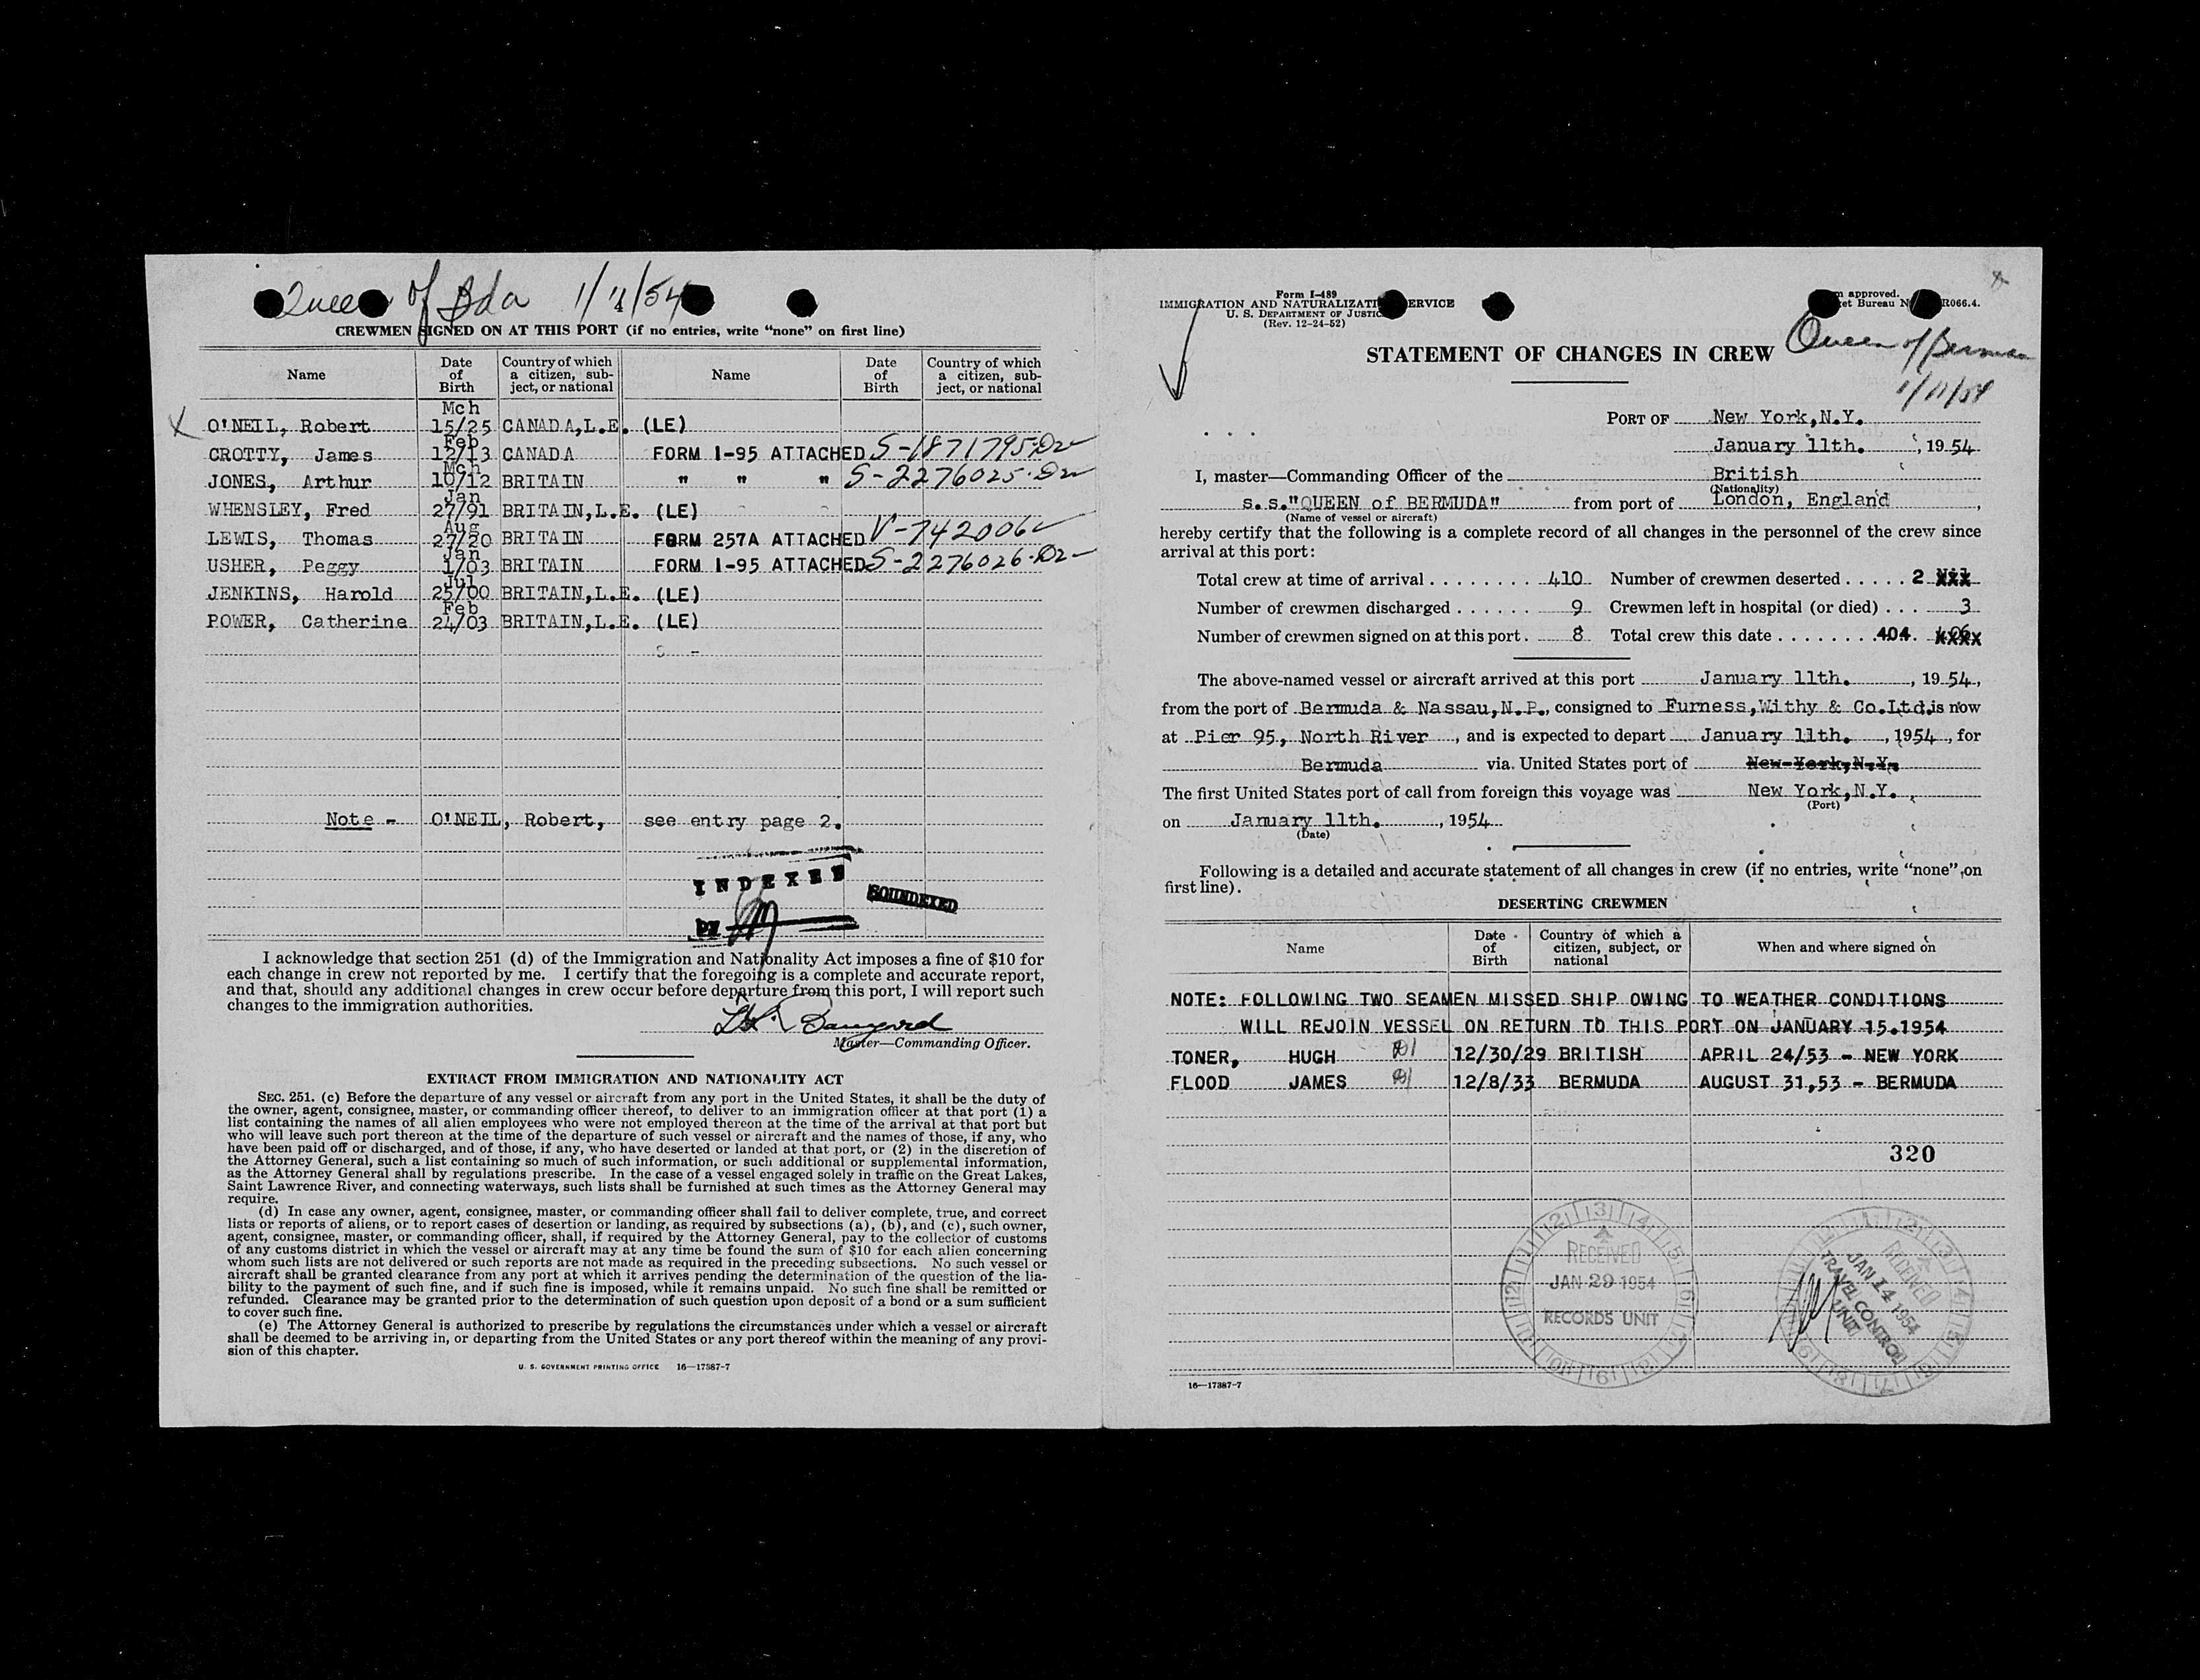 Queen of Bda 1/11/54
CREWMEN SIGNED ON AT THIS PORT (if no entries, write "none" on first line)
Name Date of Birth Country of which a citizen, subject, or national Name Date of Birth Country of which a citizen, subject, or national
X O'NEIL, Robert Mch 15/25 CANADA,L.E. (LE)
CROTTY, James Feb 12/13 CANADA FORM I-95 ATTACHED S-1871795
JONES, Arthur Mch 10/12 BRITAIN " " " S-2276025
WHENSLEY, Fred Jan 27/91 BRITAIN,L.E. (LE)
LEWIS, Thomas Aug 27/20 BRITAIN FORM 257A ATTACHED V-742006
USHER, Peggy Jan 1/03 BRITAIN FORM I-95 ATTACHED S-2276026
JENKINS, Harold Jul 25/00 BRITAIN,L.E. (LE)
POWER, Catherine Feb 24/03 BRITAIN,L.E. (LE)
Note - O'NEIL, Robert, see entry page 2.
INDEXED
SOUNDEXED
BY
I acknowledge that section 251 (d) of the Immigration and Nationality Act imposes a fine of $10 for
each change in crew not reported by me. I certify that the foregoing is a complete and accurate report,
and that, should any additional changes in crew occur before departure from this port, I will report such
changes to the immigration authorities.
Master—Commanding Officer.
EXTRACT FROM IMMIGRATION AND NATIONALITY ACT
SEC. 251. (c) Before the departure of any vessel or aircraft from any port in the United States, it shall be the duty of
the owner, agent, consignee, master, or commanding officer thereof, to deliver to an immigration officer at that port (1) a
list containing the names of all alien employees who were not employed thereon at the time of the arrival at that port but
who will leave such port thereon at the time of the departure of such vessel or aircraft and the names of those, if any, who
have been paid off or discharged, and of those, if any, who have deserted or landed at that port, or (2) in the discretion of
the Attorney General, such a list containing so much of such information, or such additional or supplemental information,
as the Attorney General shall by regulations prescribe. In the case of a vessel engaged solely in traffic on the Great Lakes,
Saint Lawrence River, and connecting waterways, such lists shall be furnished at such times as the Attorney General may
require.
(d) In case any owner, agent, consignee, master, or commanding officer shall fail to deliver complete, true, and correct
lists or reports of aliens, or to report cases of desertion or landing, as required by subsections (a), (b), and (c), such owner,
agent, consignee, master, or commanding officer, shall, if required by the Attorney General, pay to the collector of customs
of any customs district in which the vessel or aircraft may at any time be found the sum of $10 for each alien concerning
whom such lists are not delivered or such reports are not made as required in the preceding subsections. No such vessel or
aircraft shall be granted clearance from any port at which it arrives pending the determination of the question of the lia-
bility to the payment of such fine, and if such fine is imposed, while it remains unpaid. No such fine shall be remitted or
refunded. Clearance may be granted prior to the determination of such question upon deposit of a bond or a sum sufficient
to cover such fine.
(e) The Attorney General is authorized to prescribe by regulations the circumstances under which a vessel or aircraft
shall be deemed to be arriving in, or departing from the United States or any port thereof within the meaning of any provi-
sion of this chapter.
U. S. GOVERNMENT PRINTING OFFICE 16—17387-7
Form I-489
IMMIGRATION AND NATURALIZATI ERVICE
U. S. DEPARTMENT OF JUSTIC
(Rev. 12-24-52)
approved.
et Bureau N R066.4.
Queen of Bermuda
1/11/54
STATEMENT OF CHANGES IN CREW
PORT OF New York,N.Y.
January 11th. , 19 54
I, master—Commanding Officer of the British
(Nationality)
s.s."QUEEN of BERMUDA" from port of London, England ,
(Name of vessel or aircraft)
hereby certify that the following is a complete record of all changes in the personnel of the crew since
arrival at this port:
Total crew at time of arrival . . . . . . . . 410 Number of crewmen deserted . . . . . 2 Nil
Number of crewmen discharged . . . . . . 9 Crewmen left in hospital (or died) . . . 3
Number of crewmen signed on at this port . 8 Total crew this date . . . . . . . . 404. 406
The above-named vessel or aircraft arrived at this port January 11th. , 19 54,
from the port of Bermuda & Nassau,N.P., consigned to Furness,Withy & Co.Ltd.is now
at Pier 95, North River , and is expected to depart January 11th. , 1954 , for
Bermuda via United States port of New York,N.Y.
The first United States port of call from foreign this voyage was New York,N.Y.
(Port)
on January 11th. , 1954
(Date)
Following is a detailed and accurate statement of all changes in crew (if no entries, write "none" on
first line).
DESERTING CREWMEN
Name Date of Birth Country of which a citizen, subject, or national When and where signed on
NOTE: FOLLOWING TWO SEAMEN MISSED SHIP OWING TO WEATHER CONDITIONS
WILL REJOIN VESSEL ON RETURN TO THIS PORT ON JANUARY 15.1954
TONER, HUGH 12/30/29 BRITISH APRIL 24/53 - NEW YORK
FLOOD JAMES 12/8/33 BERMUDA AUGUST 31,53 - BERMUDA
320
RECEIVED
JAN 29 1954
RECORDS UNIT
RECEIVED
JAN 14 1954
TRAVEL CONTROL
UNIT
16—17387-7